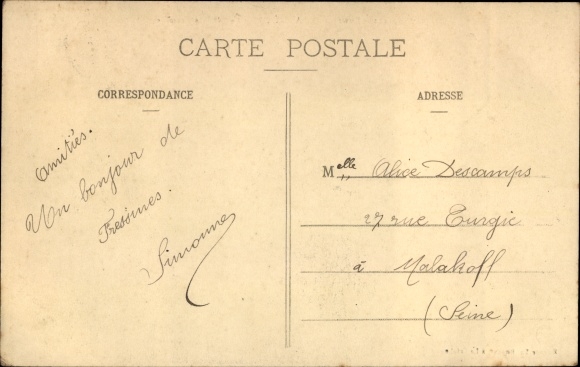 CARTE POSTALE
CORRESPONDANCE
ADRESSE
Amitiés.
Un bonjour de
Fressines.
Simonne
Melle Alice Descamps
27 rue Turgie
à Malakoff
(Seine)